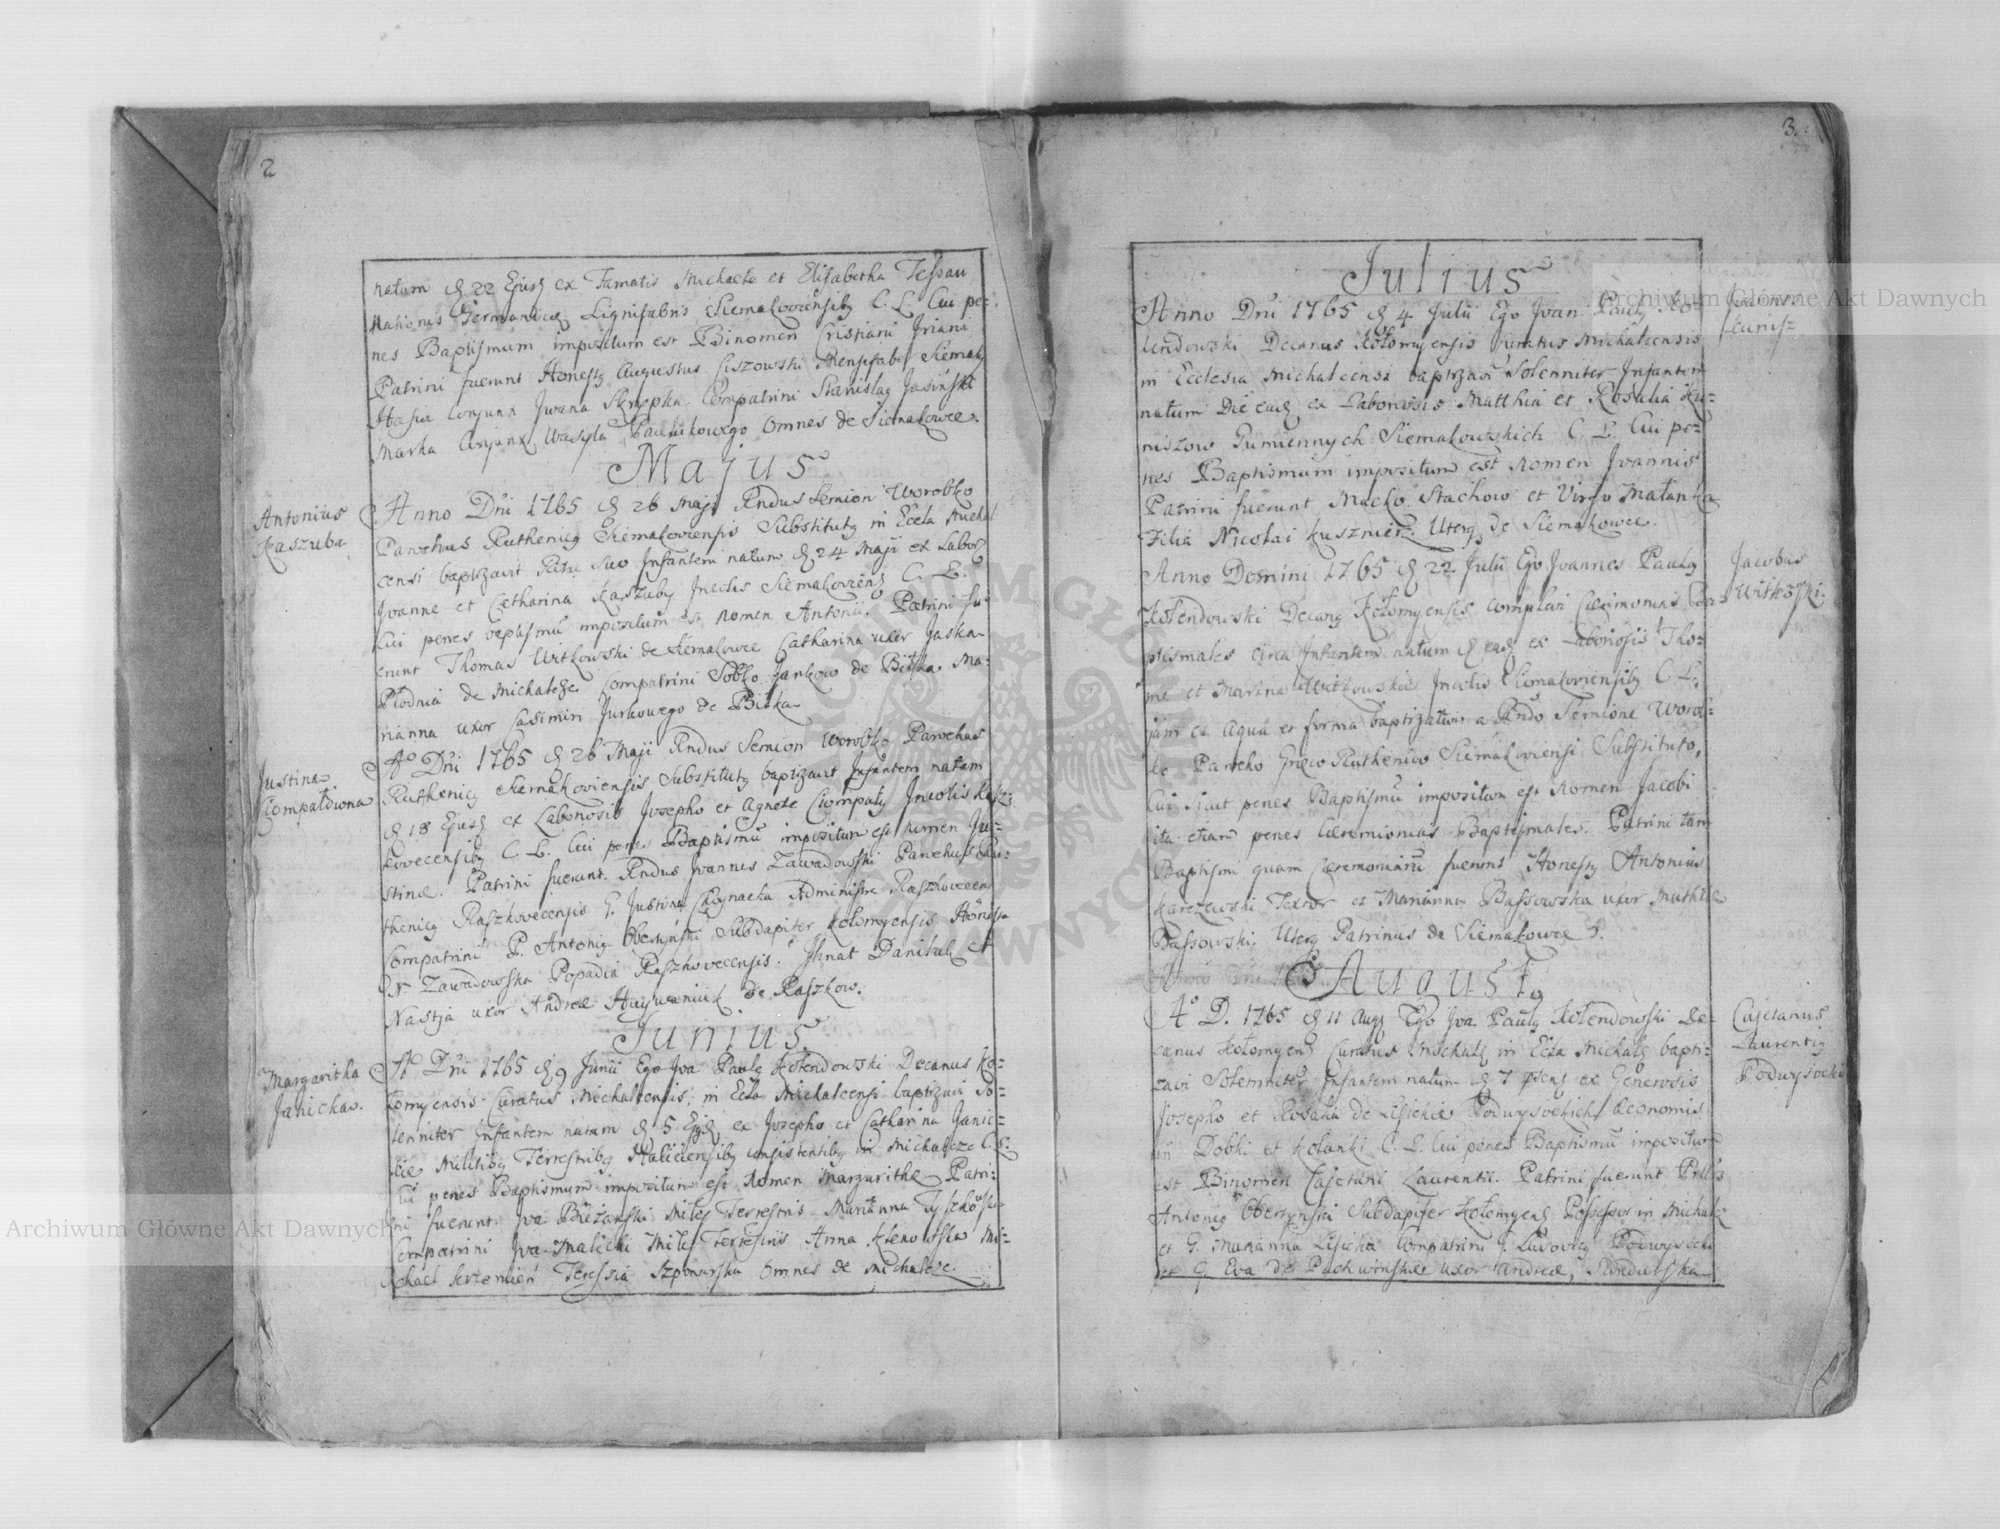 2
natum d 22 Ejusd ex Famatis Michaele et Elisabetha Tessau
Nationis Germanicæ Lignifabris Siemakoviensibg C. L. Cui pe=
nes Baptismum impositum est Binomen Cristiani
Patrini fuerunt Honestg Augustus Ciszowski Siemak
Hasia Conjunx Jwana Skrypka. Compatrini Stanislag Jasinski
Marka Conjunx Wasyla Omnes de Siemakowce.
Majus
Antonius
Kaszuba
Anno Dni 1765 d 26 Maji Rndus Semion Worobko
Parochus Ruthenicg Siemakoviensis Substitutg in Eccla Michal
censi baptizavit Ritu Suo Infantem natum d 24 Maji ex Labor
Joanne et Catharina Kaszuby Incolis Siemakoviens C. L.
Cui penes baptismu impositum est Nomen Antonii. Patrini fu=
erunt Thomas Witkowski de Siemakowce Catharina uxor Jaska
de Michalcze Compatrini Sobko Jankow de Ma=
rianna uxor Casimiri Jurkowego de
Justina
Compatowna
Ao Dni 1765 d 26 Maji Rndus Semion Worobko Parochus
Ruthenicg Siemakoviensis Substitutg baptizavit Infantem natam
d 18 Ejusd ex Laboriosis Josepho et Agnete Incolis Rasz
kovecensibg C. L. Cui penes Baptismu impositum est nomen Ju=
stinæ. Patrini fuerunt. Rndus Joannes Zawadowski Parochus Ru=
thenicg Raszkovecensis G. Justina Administra Raszkovecen
Compatrini P. Antonig Obertynski Subdapifer Kolomyensis Honesta
N Zawadowska Popadia Raszkovecensis. Jhnat Daniluk et
Nastja uxor Andreæ de Raszkow.
Junius
Margaritha
Janicka.
Ao Dni 1765 d 9 Junii Ego Joa Paulg Kołendowski Decanus Ko=
łomyensis Curatus Michalcensis, in Eccla Michalcensi baptizavi So=
lenniter Infantem natam d 5 Ejusd ex Josepho et Catharina Janic=
kie Militibg Terrestribg Haliciensibg consistentibg in Michalcze C. L.
Cui penes Baptismum impositum est Nomen Margarithæ Patri=
ni fuerunt Joa Miles Terrestris Marianna
Compatrini Joa Malicki Miles Terrestris Anna Mi=
chael Krzemień Teressia Omnes de Michalcze.
3.
Julius
Anno Dni 1765 d 4 Julii Ego Joan Paulg Ko=
lendowski Decanus Kołomyensis Curatus Michalcensis
in Ecclesia Michalcensi baptizavi Solenniter Infantem
natum Die ead ex Laboriosis Matthia et Rosalia Ku=
niszow Gumiennych Siemakowskich C. L. Cui pe=
nes Baptismum impositum est Nomen Joannis
Patrini fuerunt Macko Stachow et Virgo Małanka
Filia Nicolai Kusznierz. Uterg de Siemakowce.
Jacobus
Witkowski.
Anno Domini 1765 d 22 Julii Ego Joannes Paulg
Kołendowski Decang Kołomyensis complevi Cærimonias Ba=
ptismales circa Infantem natum d ead ex Laboriosis Tho=
ma et Marina Witkowskie Incolis Siemakoviensibg C. L.
jam ex aqua et forma baptizatum a Rndo Semione Worob=
ko Parocho Græco Ruthenico Siemakoviensi Substituto,
Cui sicut penes Baptismu impositum est Nomen Jacobi
ita etiam penes Cæremonias Baptismales. Patrini tam
Baptismi quam Cæremoniaru fuerunt Honestg Antonius
Karczewski Textor et Marianna Bassowska uxor Mathiæ
Bassowski, Uterg Patrinus de Siemakowce.
August9
Cajetanus
Laurentig
Podwysocki
Ao D. 1765 d 11 Augg Ego Joa Paulg Kołendowski De=
canus Kołomyens Curatus Michalc in Eccla Michalc bapti=
zavi Solenniter Infantem natum d 7 ex Generosis
Josepho et Rosalia de Lisickie Podwysockich Oeconomis
in Dobki et Kolanki C. L. Cui penes Baptismu impositum
est Binomen Cajetani Laurentii. Patrini fuerunt
Antonig Obertynski Subdapifer Kołomyens Possessor in Michalc
et G. Marianna Lisicka Compatrini G. Ludovicg Podwysocki
et G. Eva de uxor Andreæ,